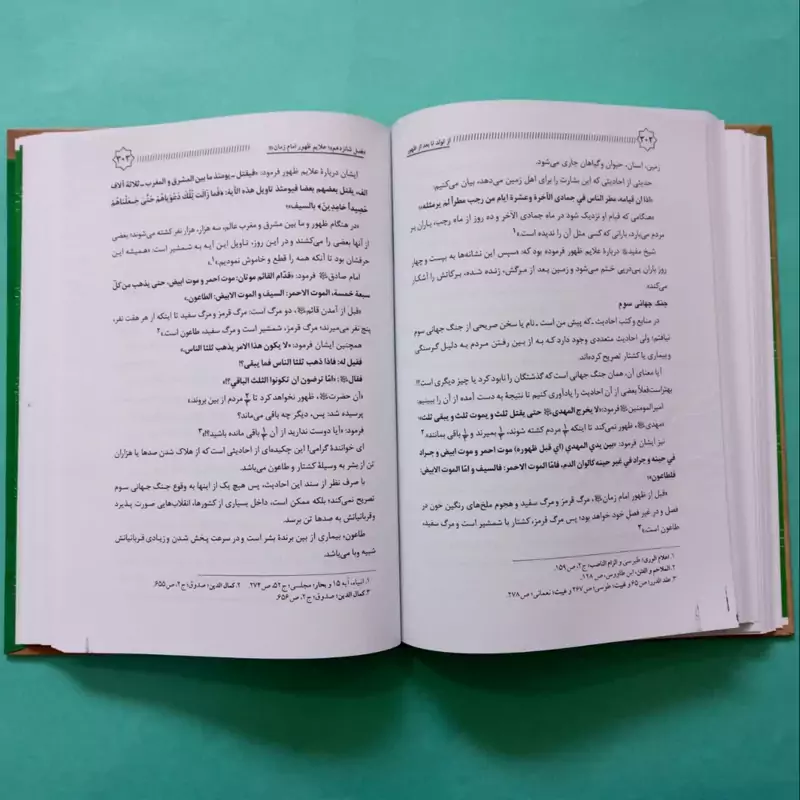 ۳۰۲
از تولد تا بعد از ظهور
زمین، انسان، حیوان و گیاهان جاری می‌شود.
حدیثی از احادیثی که این بشارت را برای اهل زمین می‌دهد، بیان می‌کنیم:
«اذا ان قیامه، مطر الناس في جمادی الآخرة و عشرة ایام من رجب مطراً لم یر مثله.»
«هنگامی که قیام او نزدیک شود در ماه جمادی الآخر و ده روز از ماه رجب، باران بر
مردم می‌بارد، بارانی که کسی مثل آن را ندیده است.»۱
شیخ مفید درباره علایم ظهور فرموده بود که: «سپس این نشانه‌ها به بیست و چهار
روز باران پی‌درپی ختم می‌شود و زمین بعد از مرگش، زنده شده، برکاتش را آشکار
می‌کند.»
جنگ جهانی سوم
در منابع و کتب احادیث ـ که پیش من است ـ نام یا سخن صریحی از جنگ جهانی سوم
نیافتم؛ ولی احادیث متعددی وجود دارد که به از بین رفتن مردم به دلیل گرسنگی
و بیماری یا کشتار تصریح کرده‌اند.
آیا معنای آن، همان جنگ جهانی است که گذشتگان را نابود کرد یا چیز دیگری است؟!
بهتر است فعلاً بعضی از آن احادیث را یادآوری کنیم تا نتیجهٔ به دست آمده از آن را ببینیم:
امیرالمومنین فرمود: «لا یخرج المهدي حتی یقتل ثلث و یموت ثلث و یبقی ثلث»
«مهدی، ظهور نمی‌کند تا اینکه ۱/۳ مردم کشته شوند، ۱/۳ بمیرند و ۱/۳ باقی بمانند.»۲
نیز ایشان فرمود: «بین یدي المهدي (أي قبل ظهوره) موت احمر و موت ابیض و جراد
في حینه و جراد في غیر حینه کألوان الدم، فأمّا الموت الاحمر: فالسیف و امّا الموت الابیض:
فالطاعون»
«قبل از ظهور امام زمان، مرگ قرمز و مرگ سفید و هجوم ملخ‌های رنگین خون در
فصل و در غیر فصل خود خواهد بود؛ پس مرگ قرمز، کشتار با شمشیر است و مرگ سفید،
طاعون است.»۳
۱. اعلام الوری؛ طبرسی و الزام الناصب، ج۲، ص۱۵۹.
۲. الملاحم و الفتن، ابن طاووس، ص۱۲۸.
۳. عقد الدرر؛ ص۶۵ و غیبت؛ طوسی؛ ص۲۶۷ و غیبت؛ نعمانی؛ ص۲۷۸.
«فصل شانزدهم» علایم ظهور امام زمان
۳۰۳
ایشان دربارهٔ علایم ظهور فرمود: «فیقتل ـ یومئذ ما بین المشرق و المغرب ـ ثلاثة آلاف
الف، یقتل بعضهم بعضاً فیومئذ تاویل هذه الآیة: ﴿فَما زالَت تِلْكَ دَعْواهُمْ حَتّى جَعَلْناهُمْ
حَصِیداً خامِدِینَ﴾ بالسیف.»
«در هنگام ظهور و ما بین مشرق و مغرب عالم، سه هزار، هزار نفر کشته می‌شوند؛ بعضی
از آنها بعضی را می‌کشند و در این روز، تاویل این آیه به شمشیر است: «همیشه این
حرفشان بود تا آنکه همه را قطع و خاموش نمودیم.»۱
امام صادق فرمود: «قدّام القائم موتان: موت احمر و موت ابیض، حتی یذهب من کلّ
سبعة خمسة، الموت الاحمر: السیف و الموت الابیض: الطاعون.»
«قبل از آمدن قائم، دو مرگ است: مرگ قرمز و مرگ سفید تا اینکه از هر هفت نفر،
پنج نفر می‌میرند؛ مرگ قرمز، شمشیر است و مرگ سفید، طاعون است.»۲
همچنین ایشان فرمود: «لا یکون هذا الامر یذهب ثلثا الناس.»
فقیل له: فاذا ذهب ثلثا الناس فما یبقی؟!
فقال: «امّا ترضون ان تکونوا الثلث الباقي؟!»
«آن حضرت، ظهور نخواهد کرد تا ۲/۳ مردم از بین بروند.»
پرسیده شد: پس، دیگر چه باقی می‌ماند؟
فرمود: «آیا دوست ندارید از آن ۱/۳ باقی مانده باشید؟!»۳
ای خوانندهٔ گرامی! این چکیده‌ای از احادیثی است که از هلاک شدن صدها یا هزاران
تن از بشر به وسیلهٔ کشتار و طاعون می‌باشد.
با صرف نظر از سند این احادیث، پس هیچ یک از اینها به وقوع جنگ جهانی سوم
تصریح نمی‌کند؛ بلکه ممکن است، داخل بسیاری از کشورها، انقلاب‌هایی صورت پذیرد
و قربانیانش به صدها تن برسد.
طاعون، بیماری از بین برندهٔ بشر است و در سرعت پخش شدن و زیادی قربانیانش
شبیه وبا می‌باشد.
۱. انبیاء، آیه ۱۵ و بحار؛ مجلسی؛ ج۵۲، ص۲۷۴. ۲. کمال الدین؛ صدوق؛ ج۲، ص۶۵۵.
۳. کمال الدین؛ صدوق؛ ج۲، ص۶۵۶.